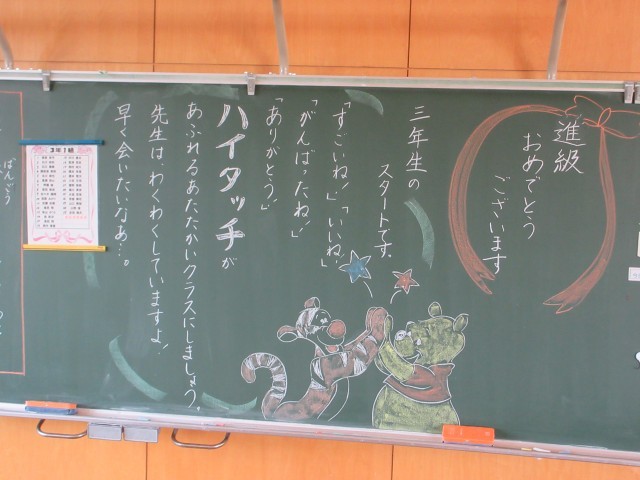 進級
おめでとう
ございます
三年生の
スタートです。
「すごいね！」「いいね！」
「がんばったね！」
「ありがとう！」
ハイタッチが
あふれるあたたかいクラスにしましょう。
先生は、わくわくしていますよ！
早く会いたいなあ…。
3年1組
ばんごう